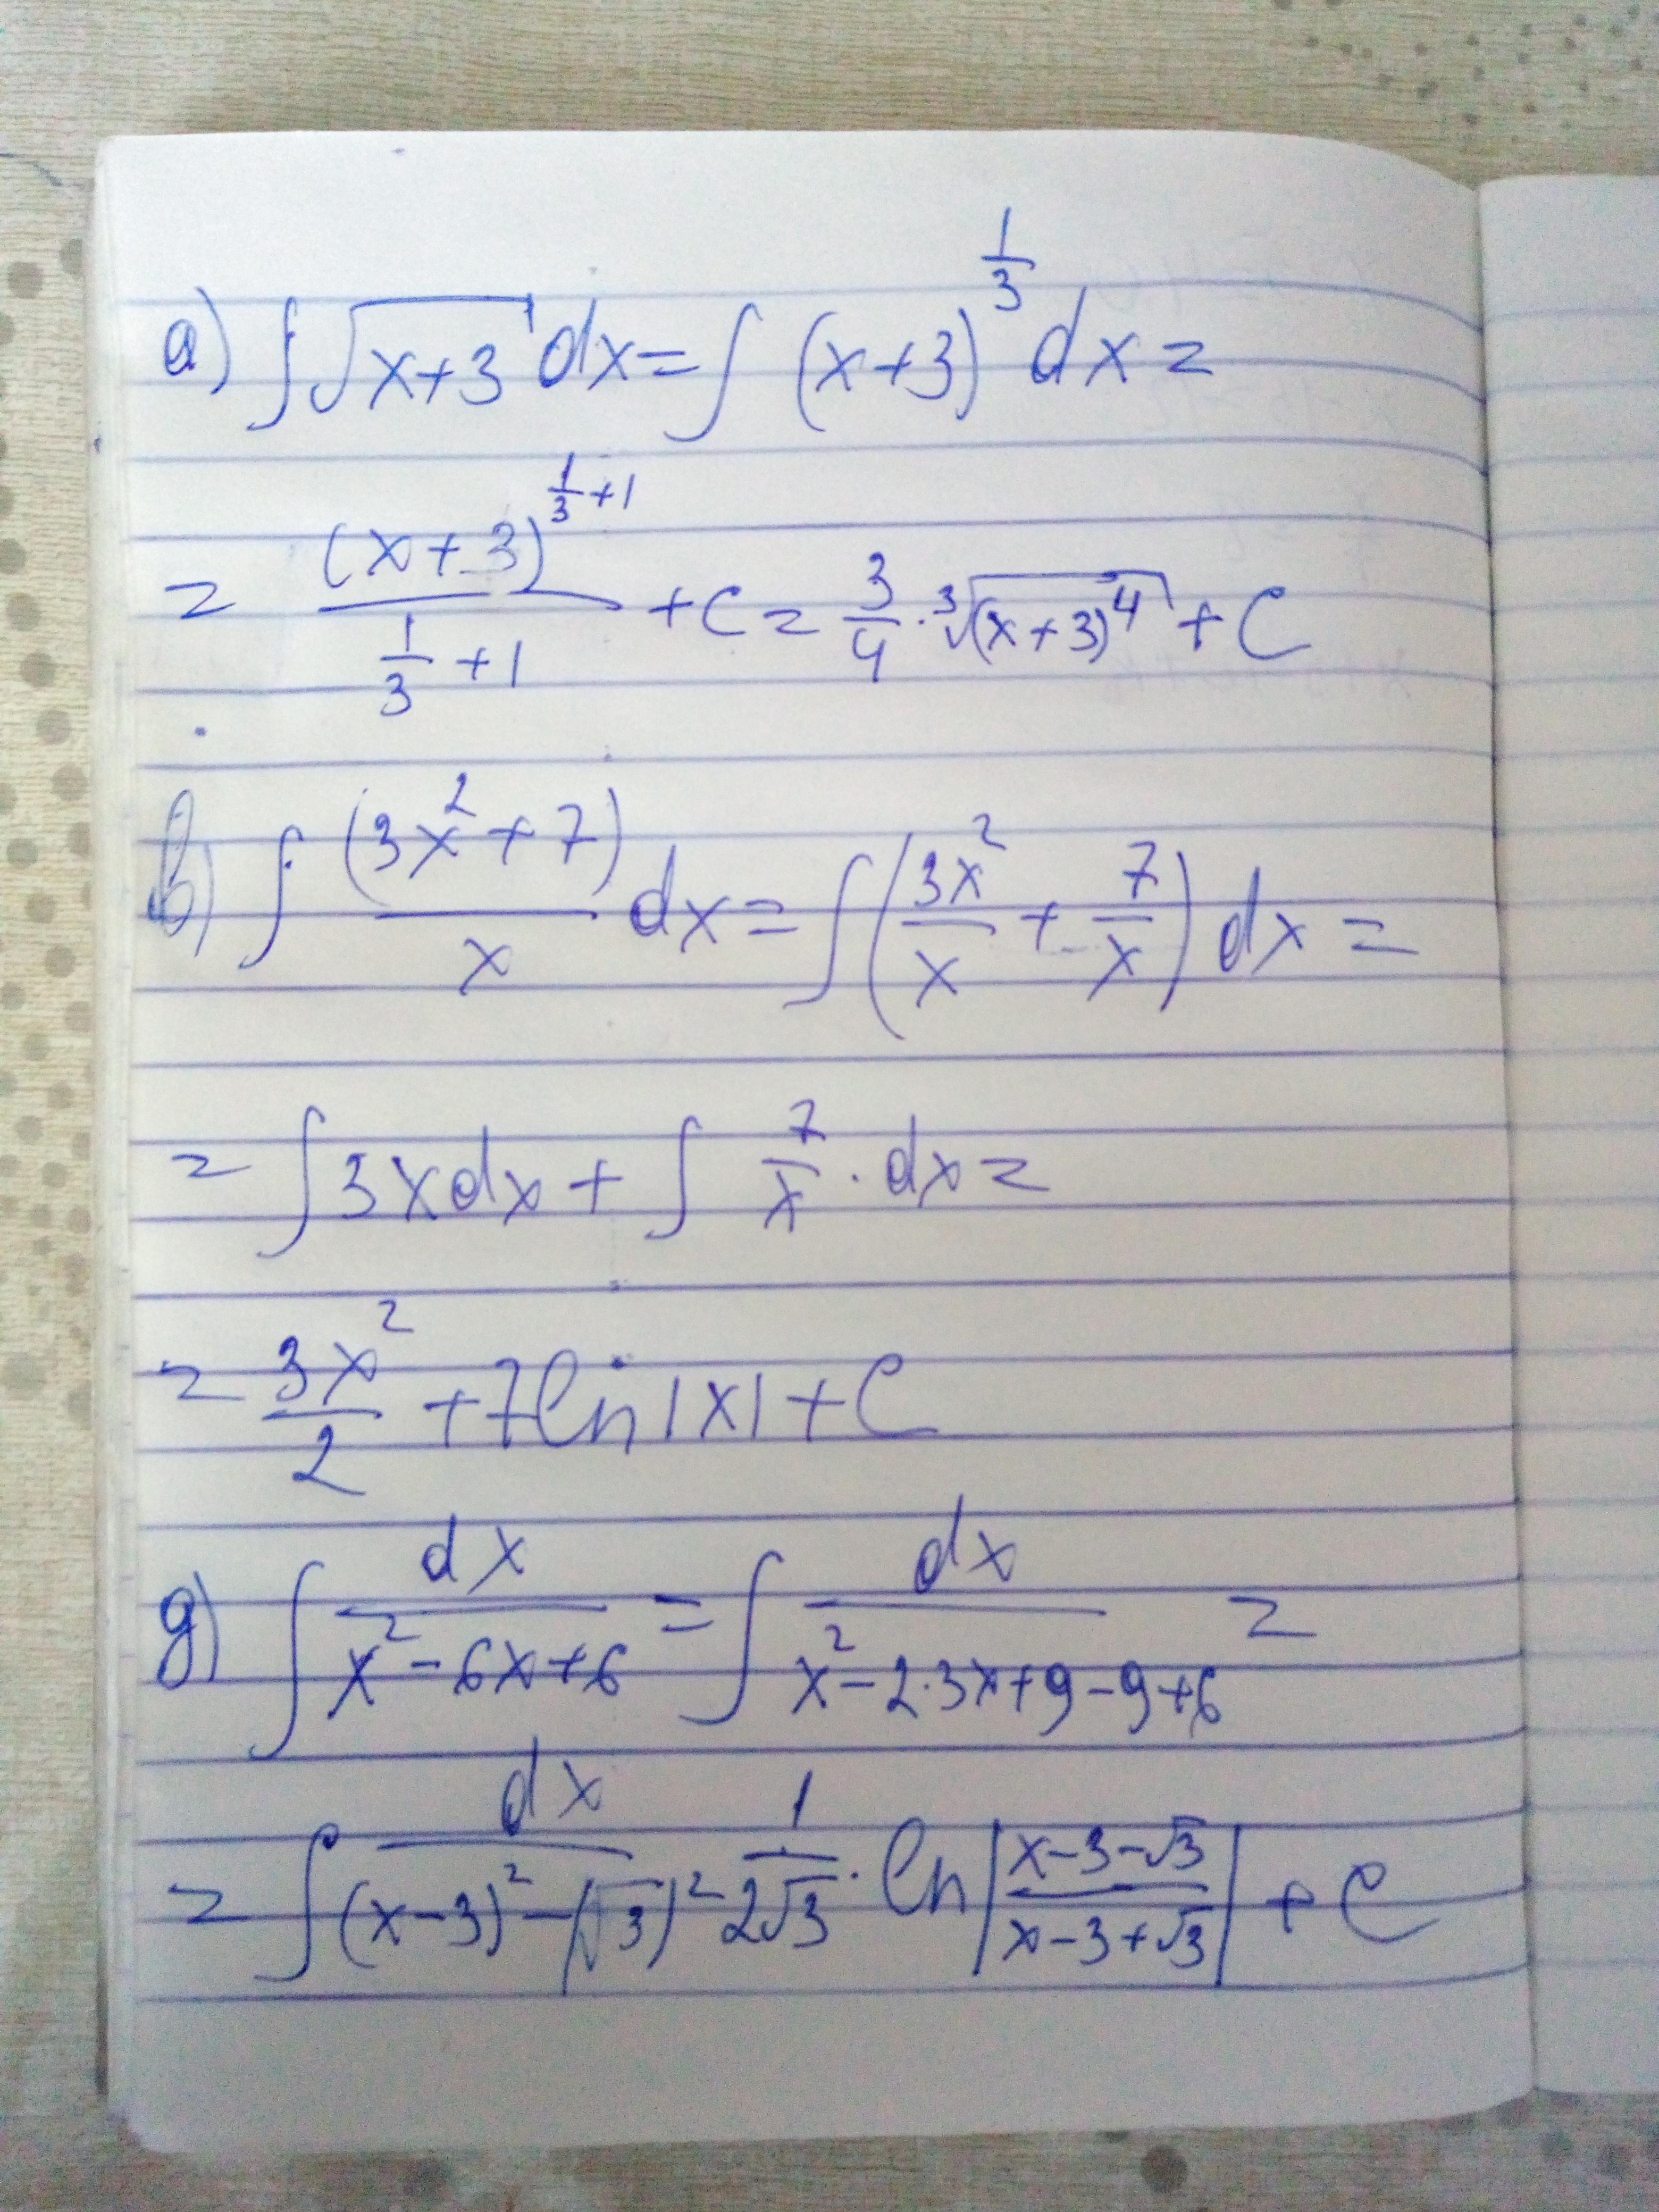 a) ∫√(x+3) dx = ∫ (x+3)^(1/3) dx =
= (x+3)^(1/3+1) / (1/3+1) + C = 3/4 · ∛((x+3)^4) + C
b) ∫ (3x²+7)/x dx = ∫ (3x²/x + 7/x) dx =
= ∫ 3x dx + ∫ 7/x · dx =
= 3x²/2 + 7 ln |x| + C
g) ∫ dx/(x² - 6x + 6) = ∫ dx/(x² - 2·3x + 9 - 9 + 6) =
= ∫ dx/((x-3)² - (√3)²) = 1/(2√3) · ln |(x-3-√3)/(x-3+√3)| + C